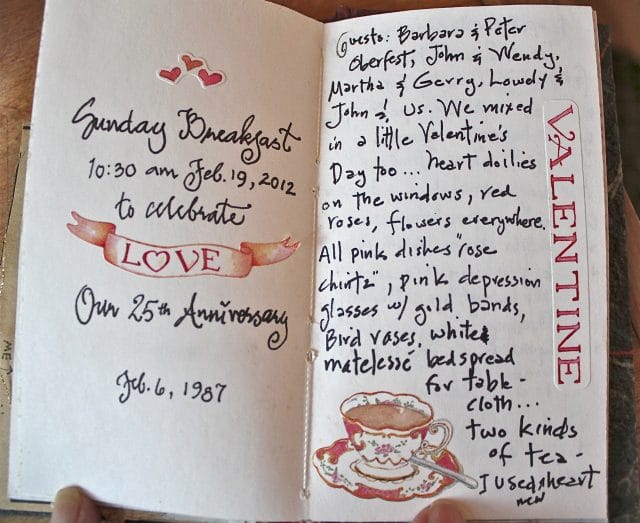 Sunday Breakfast
10:30 am Feb. 19, 2012
to celebrate
LOVE
Our 25th Anniversary
Feb. 6, 1987
Guests: Barbara & Peter
Oberfest, John & Wendy,
Martha & Gerry, Lowdy &
John & us. We mixed
in a little Valentine's
Day too... heart doilies
on the windows, red
roses, flowers everywhere.
All pink dishes "rose
chintz", pink depression
glasses w/ gold bands,
Bird vases, white
matelessé bedspread
for table-
cloth...
two kinds
of tea -
I used heart
new
VALENTINE